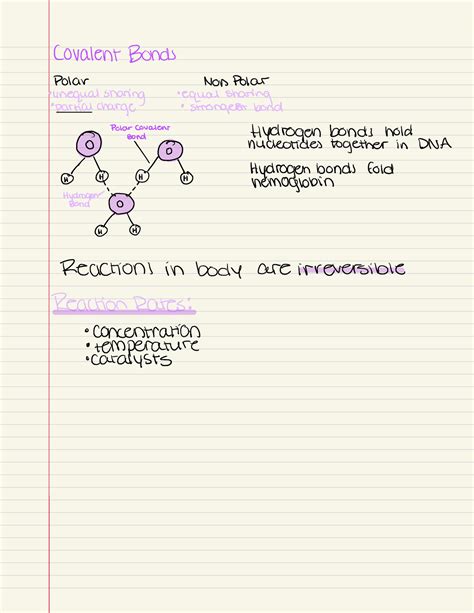 Covalent Bonds
Polar
•unequal sharing
•partial charge
Non Polar
•equal sharing
•strongest bond
Polar Covalent
Bond
O
O
H
H
H
H
Hydrogen
Bond
O
H
H
Hydrogen bonds hold
nucleotides together in DNA
Hydrogen bonds fold
hemoglobin
Reactions in body are irreversible
Reaction Rates:
•concentration
•temperature
•catalysts